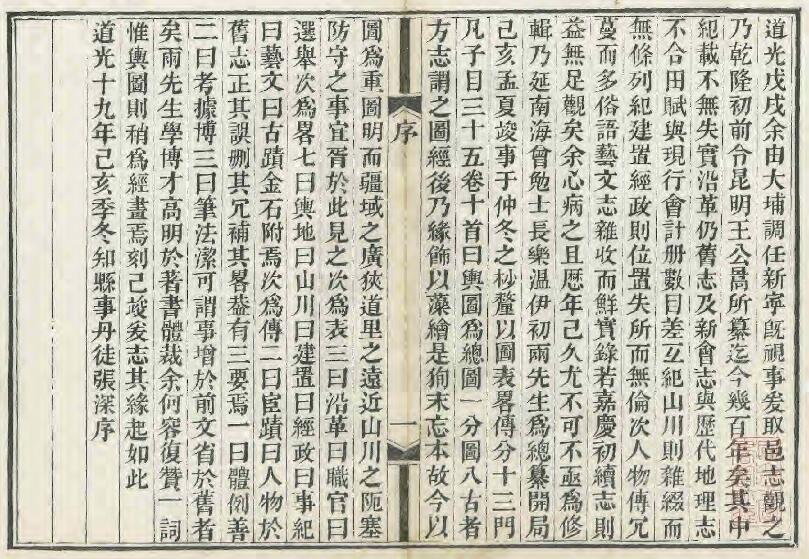 道光戊戌余由大埔調任新寧旣視事爰取邑志觀之
乃乾隆初前令昆明王公暠所纂迄今幾百年矣其中
紀載不無失實沿革仍舊志及新會志與歷代地理志
不合田賦與現行會計册數目差互紀山川則雜綴而
無條列紀建置經政則位置失所而無倫次人物傳冗
蔓而多俗語藝文志雜收而鮮實錄若嘉慶初續志則
益無足觀矣余心病之且歴年已久尤不可不亟爲修
輯乃延南海曾勉士長樂温伊初兩先生爲總纂開局
己亥孟夏竣事于仲冬之杪釐以圖表畧傳分十三門
凡子目三十五卷十首曰輿圖爲總圖一分圖八古者
方志謂之圖經後乃緣飾以藻繪是狥末忘本故今以
序
一
圖爲重圖明而疆域之廣狹道里之遠近山川之阨塞
防守之事宜胥於此見之次爲表三曰沿革曰職官曰
選舉次爲畧七曰輿地曰山川曰建置曰經政曰事紀
曰藝文曰古蹟金石附焉次爲傳二曰宦蹟曰人物於
舊志正其誤删其冗補其畧葢有三要焉一曰體例善
二曰考據博三曰筆法潔可謂事增於前文省於舊者
矣兩先生學博才高明於著書體裁余何容復贊一詞
惟輿圖則稍爲經畫焉刻已竣爰志其緣起如此
道光十九年己亥季冬知縣事丹徒張深序